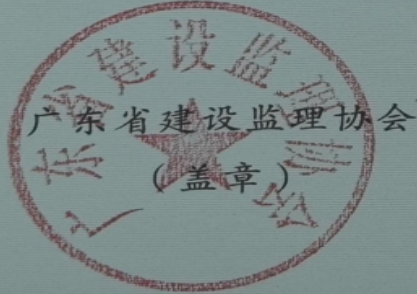 广东省建设监理协会
广东省建设监理协会
（盖章）